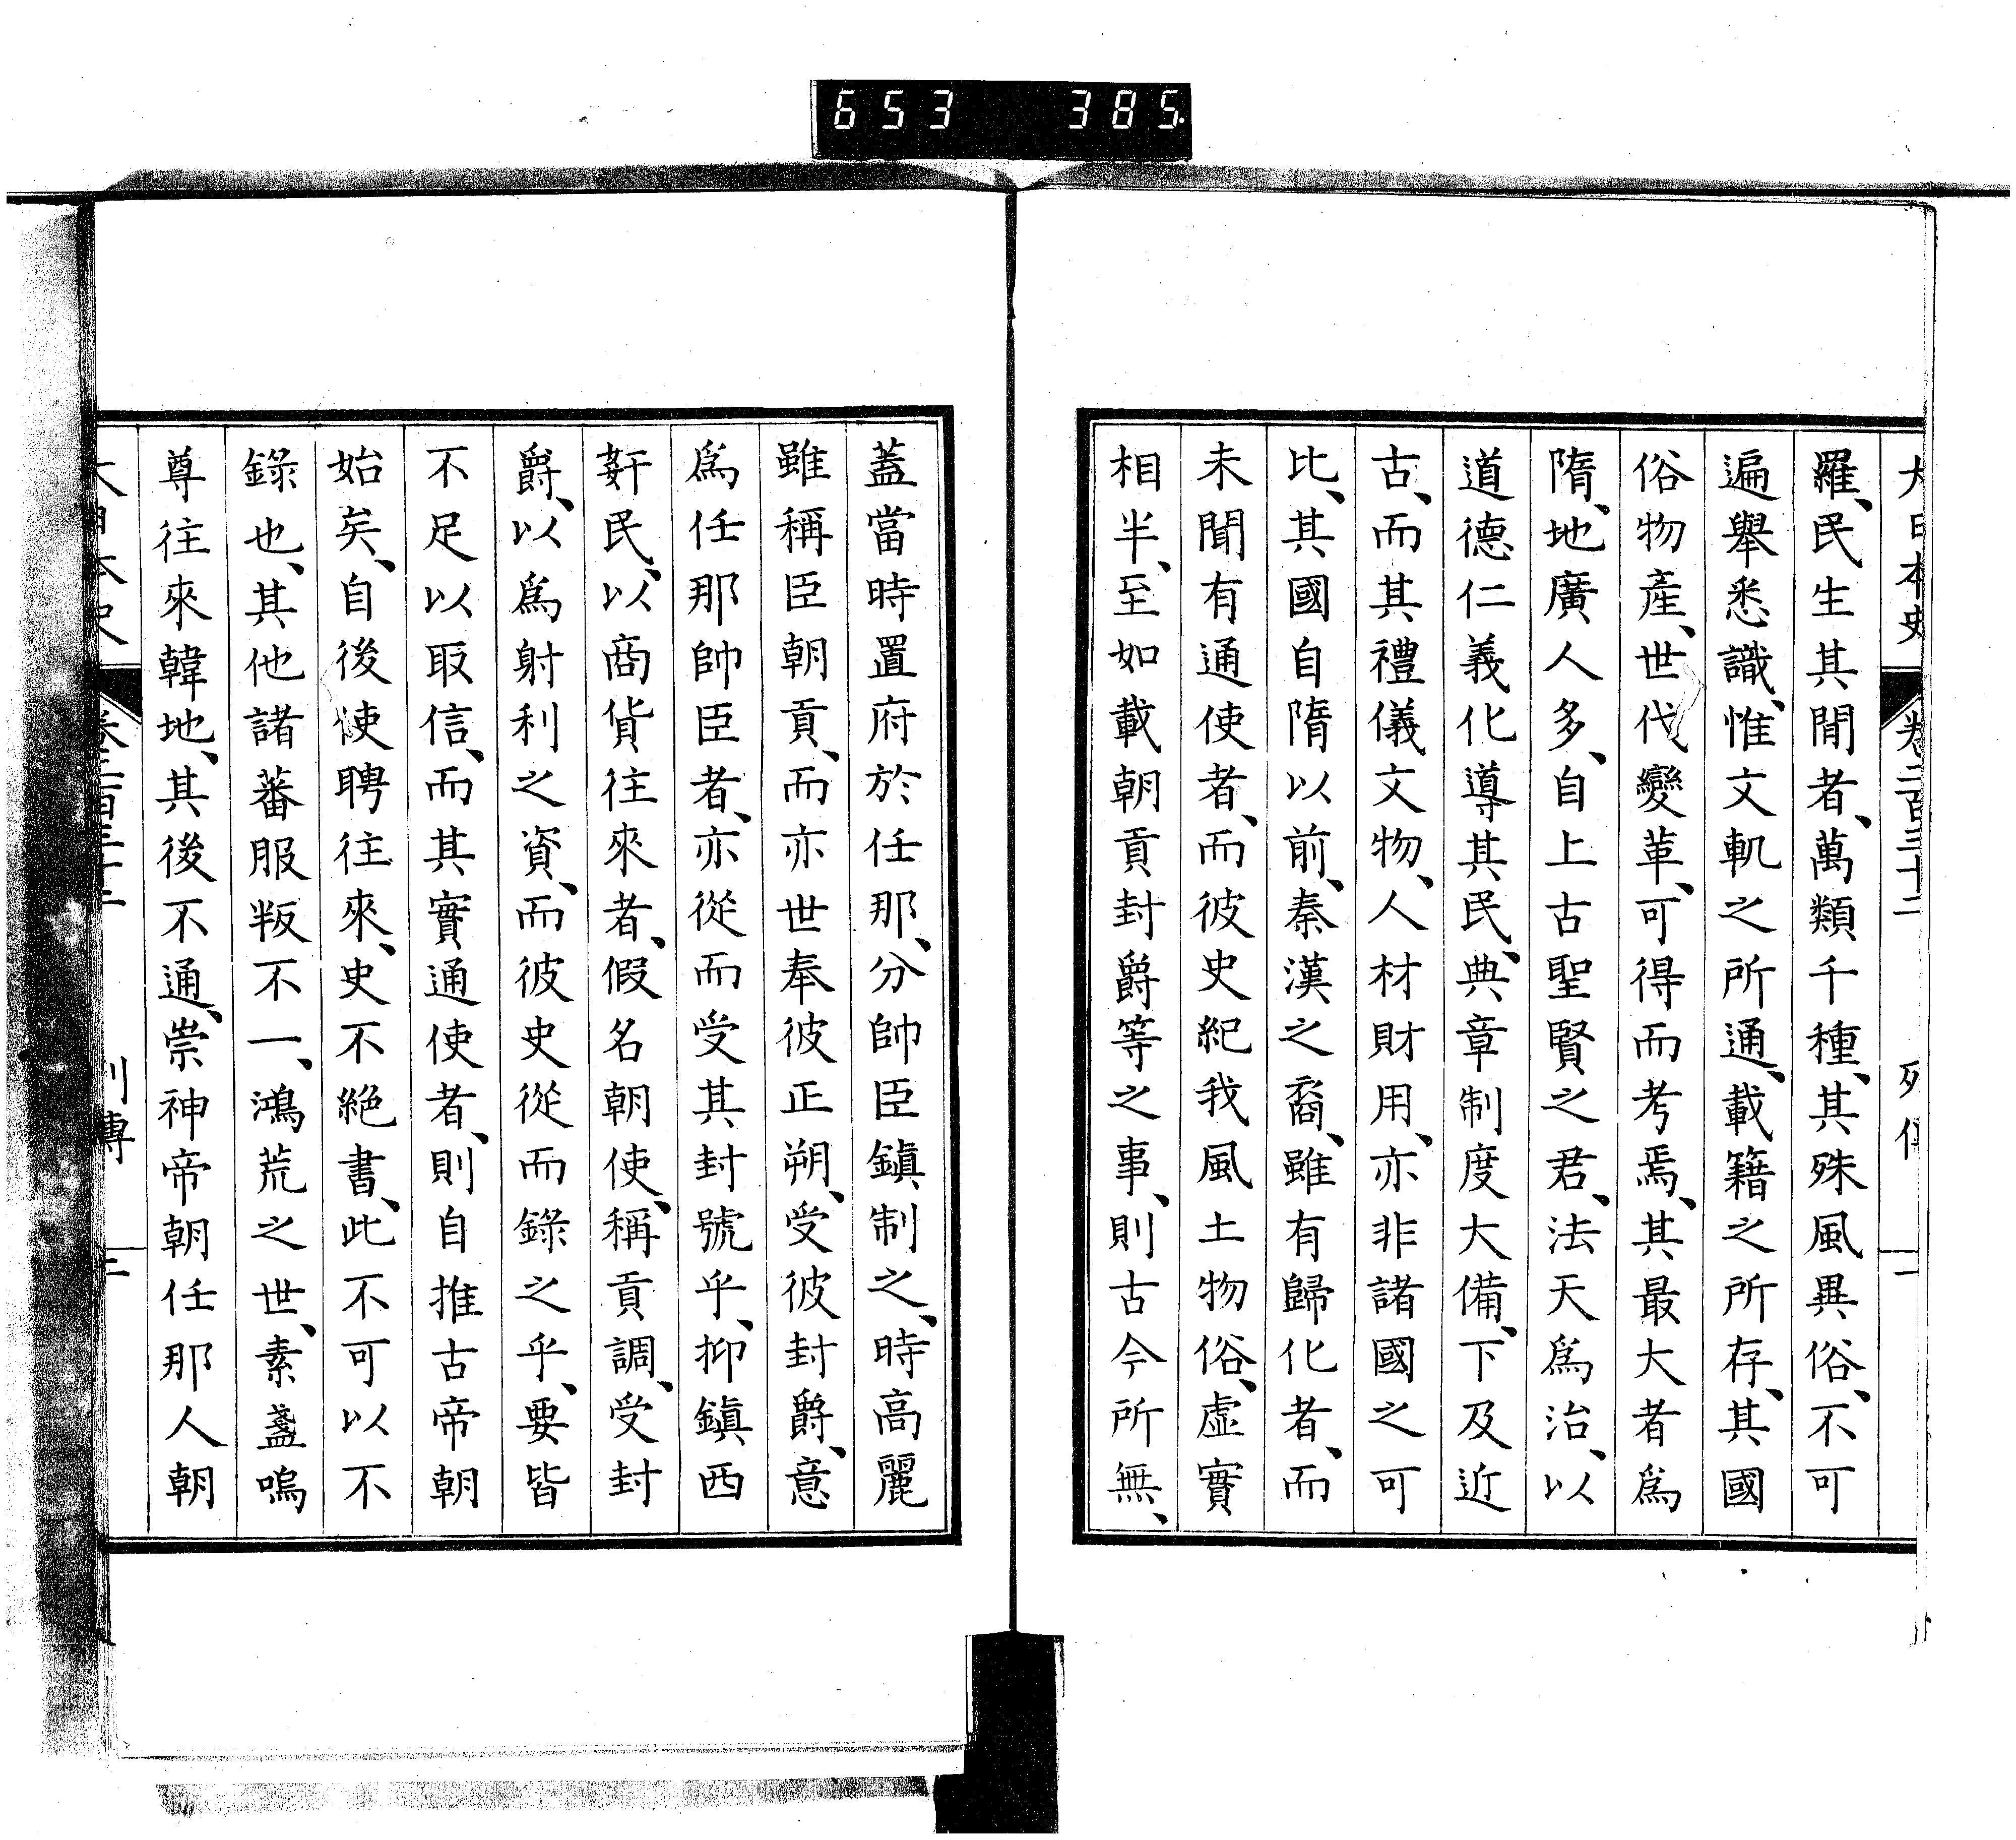 653 385
大日本史 卷二百三十二 列傳 二
羅、民生其閒者、萬類千種、其殊風異俗、不可
遍舉悉識、惟文軌之所通、載籍之所存、其國
俗物產、世代變革、可得而考焉、其最大者爲
隋、地廣人多、自上古聖賢之君、法天爲治、以
道德仁義化導其民、典章制度大備、下及近
古、而其禮儀文物、人材財用、亦非諸國之可
比、其國自隋以前、秦漢之裔、雖有歸化者、而
未聞有通使者、而彼史紀我風土物俗、虛實
相半、至如載朝貢封爵等之事、則古今所無、
蓋當時置府於任那、分帥臣鎮制之、時高麗
雖稱臣朝貢、而亦世奉彼正朔、受彼封爵、意
爲任那帥臣者、亦從而受其封號乎、抑鎮西
姧民、以商貨往來者、假名朝使、稱貢調、受封
爵、以爲射利之資、而彼史從而錄之乎、要皆
不足以取信、而其實通使者、則自推古帝朝
始矣、自後使聘往來、史不絕書、此不可以不
錄也、其他諸蕃服叛不一、鴻荒之世、素盞嗚
尊往來韓地、其後不通、崇神帝朝任那人朝
大日本史 卷二百三十二 列傳 三